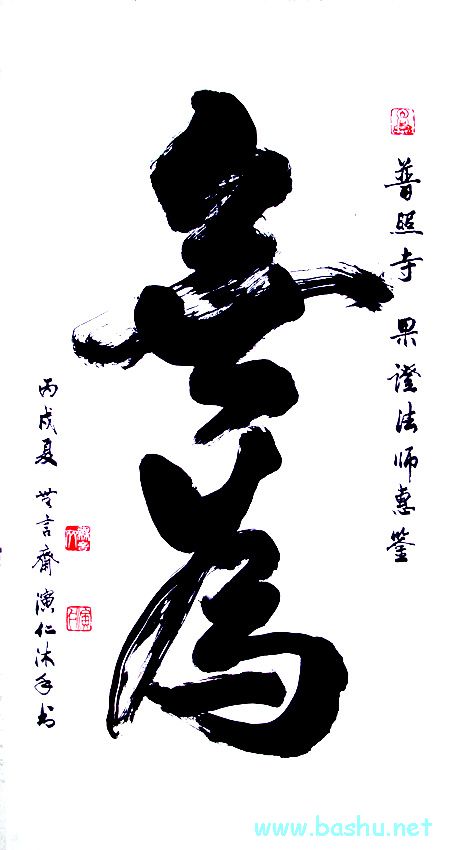 普照寺 果證法師惠鑒
無為
丙戌夏 無言齋演仁沐手書
www.bashu.net